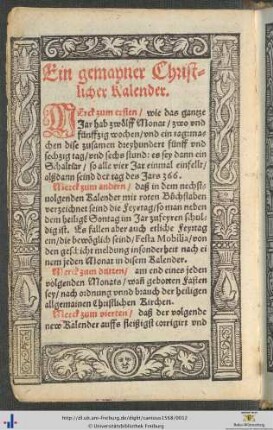 Ein gemayner Christ-
licher Kalender.
MErck zum ersten / wie das gantze
Jar hab zwölff Monat / zwo vnd
fünfftzig wochen / vnd ein tag: mac
hen dise zusamen dreyhundert fünff vnd
sechtzig tag / vnd sechs stund: es sey dann ein
Schaltiar / so alle vier Jar einmal einfellt /
alßdann seind der tag des Jars 366.
Merck zum andern / daß in dem nechst-
uolgenden Kalender mit roten Büchstaben
verzeichnet seind die Feyrtag / so man neben
dem heiligē Sontag im Jar zufeyren schul-
dig ist. Es fallen aber auch etliche Feyrtag
ein / die beweglich seind / Festa Mobilia / von
den geschicht meldung insonderheit nach ei
nem jeden Monat in disem Kalender.
Merck zum dritten / am end eines jeden
volgenden Monats / waß gebotten Fasten
sey / nach ordnung vnnd brauch der heiligen
allgemainen Christlichen Kirchen.
Merck zum vierten / daß der volgende
new Kalender auffs fleißigst corrigiert vnd
http://dl.ub.uni-freiburg.de/diglit/canisius1568/0012
© Universitätsbibliothek Freiburg
Baden-Württemberg